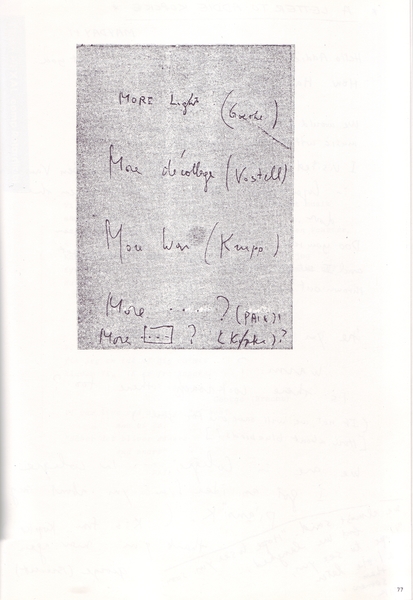 MORE Light (Goethe)
More décollage (Vostell)
More War (Krupp)
More .... ? (PAIK)!
More ... ?
77